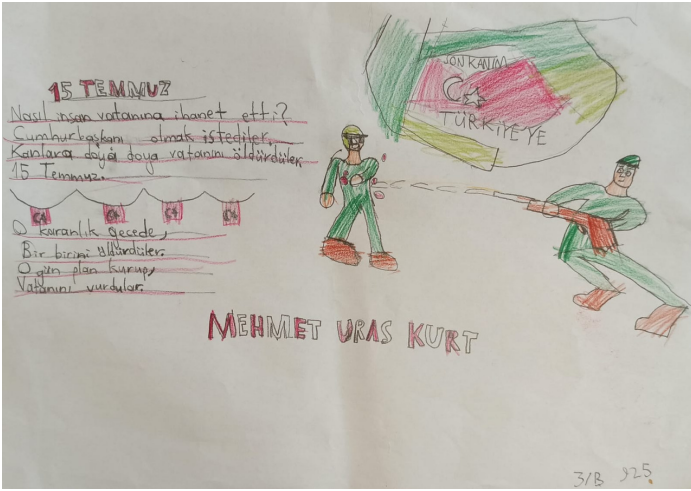 15 TEMMUZ
Nasıl insan vatanına ihanet etti?
Cumhurbaşkanı olmak istediler,
Kanlara doya doya vatanını öldürdüler
15 Temmuz.
O karanlık gecede,
Bir birini öldürdüler.
O gün plan kurup,
Vatanını vurdular.
SON KANIM
TÜRKİYEYE
MEHMET URAS KURT
3/B 925